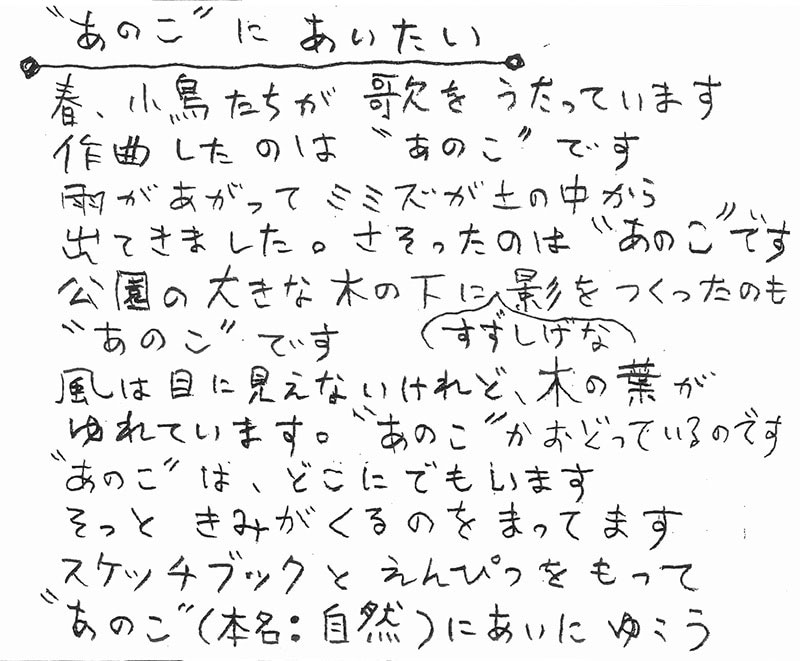 “あのこ”に あいたい
春、小鳥たちが 歌を うたっています
作曲したのは “あのこ”です
雨があがって ミミズが土の中から
出てきました。さそったのは“あのこ”です
公園の大きな木の下に影をつくったのも
(すずしげな)
“あのこ”です
風は目に見えないけれど、木の葉が
ゆれています。“あのこ”がおどっているのです
“あのこ”は、どこにでもいます
そっと きみがくるのをまってます
スケッチブックと えんぴつをもって
“あのこ”(本名:自然)にあいに ゆこう